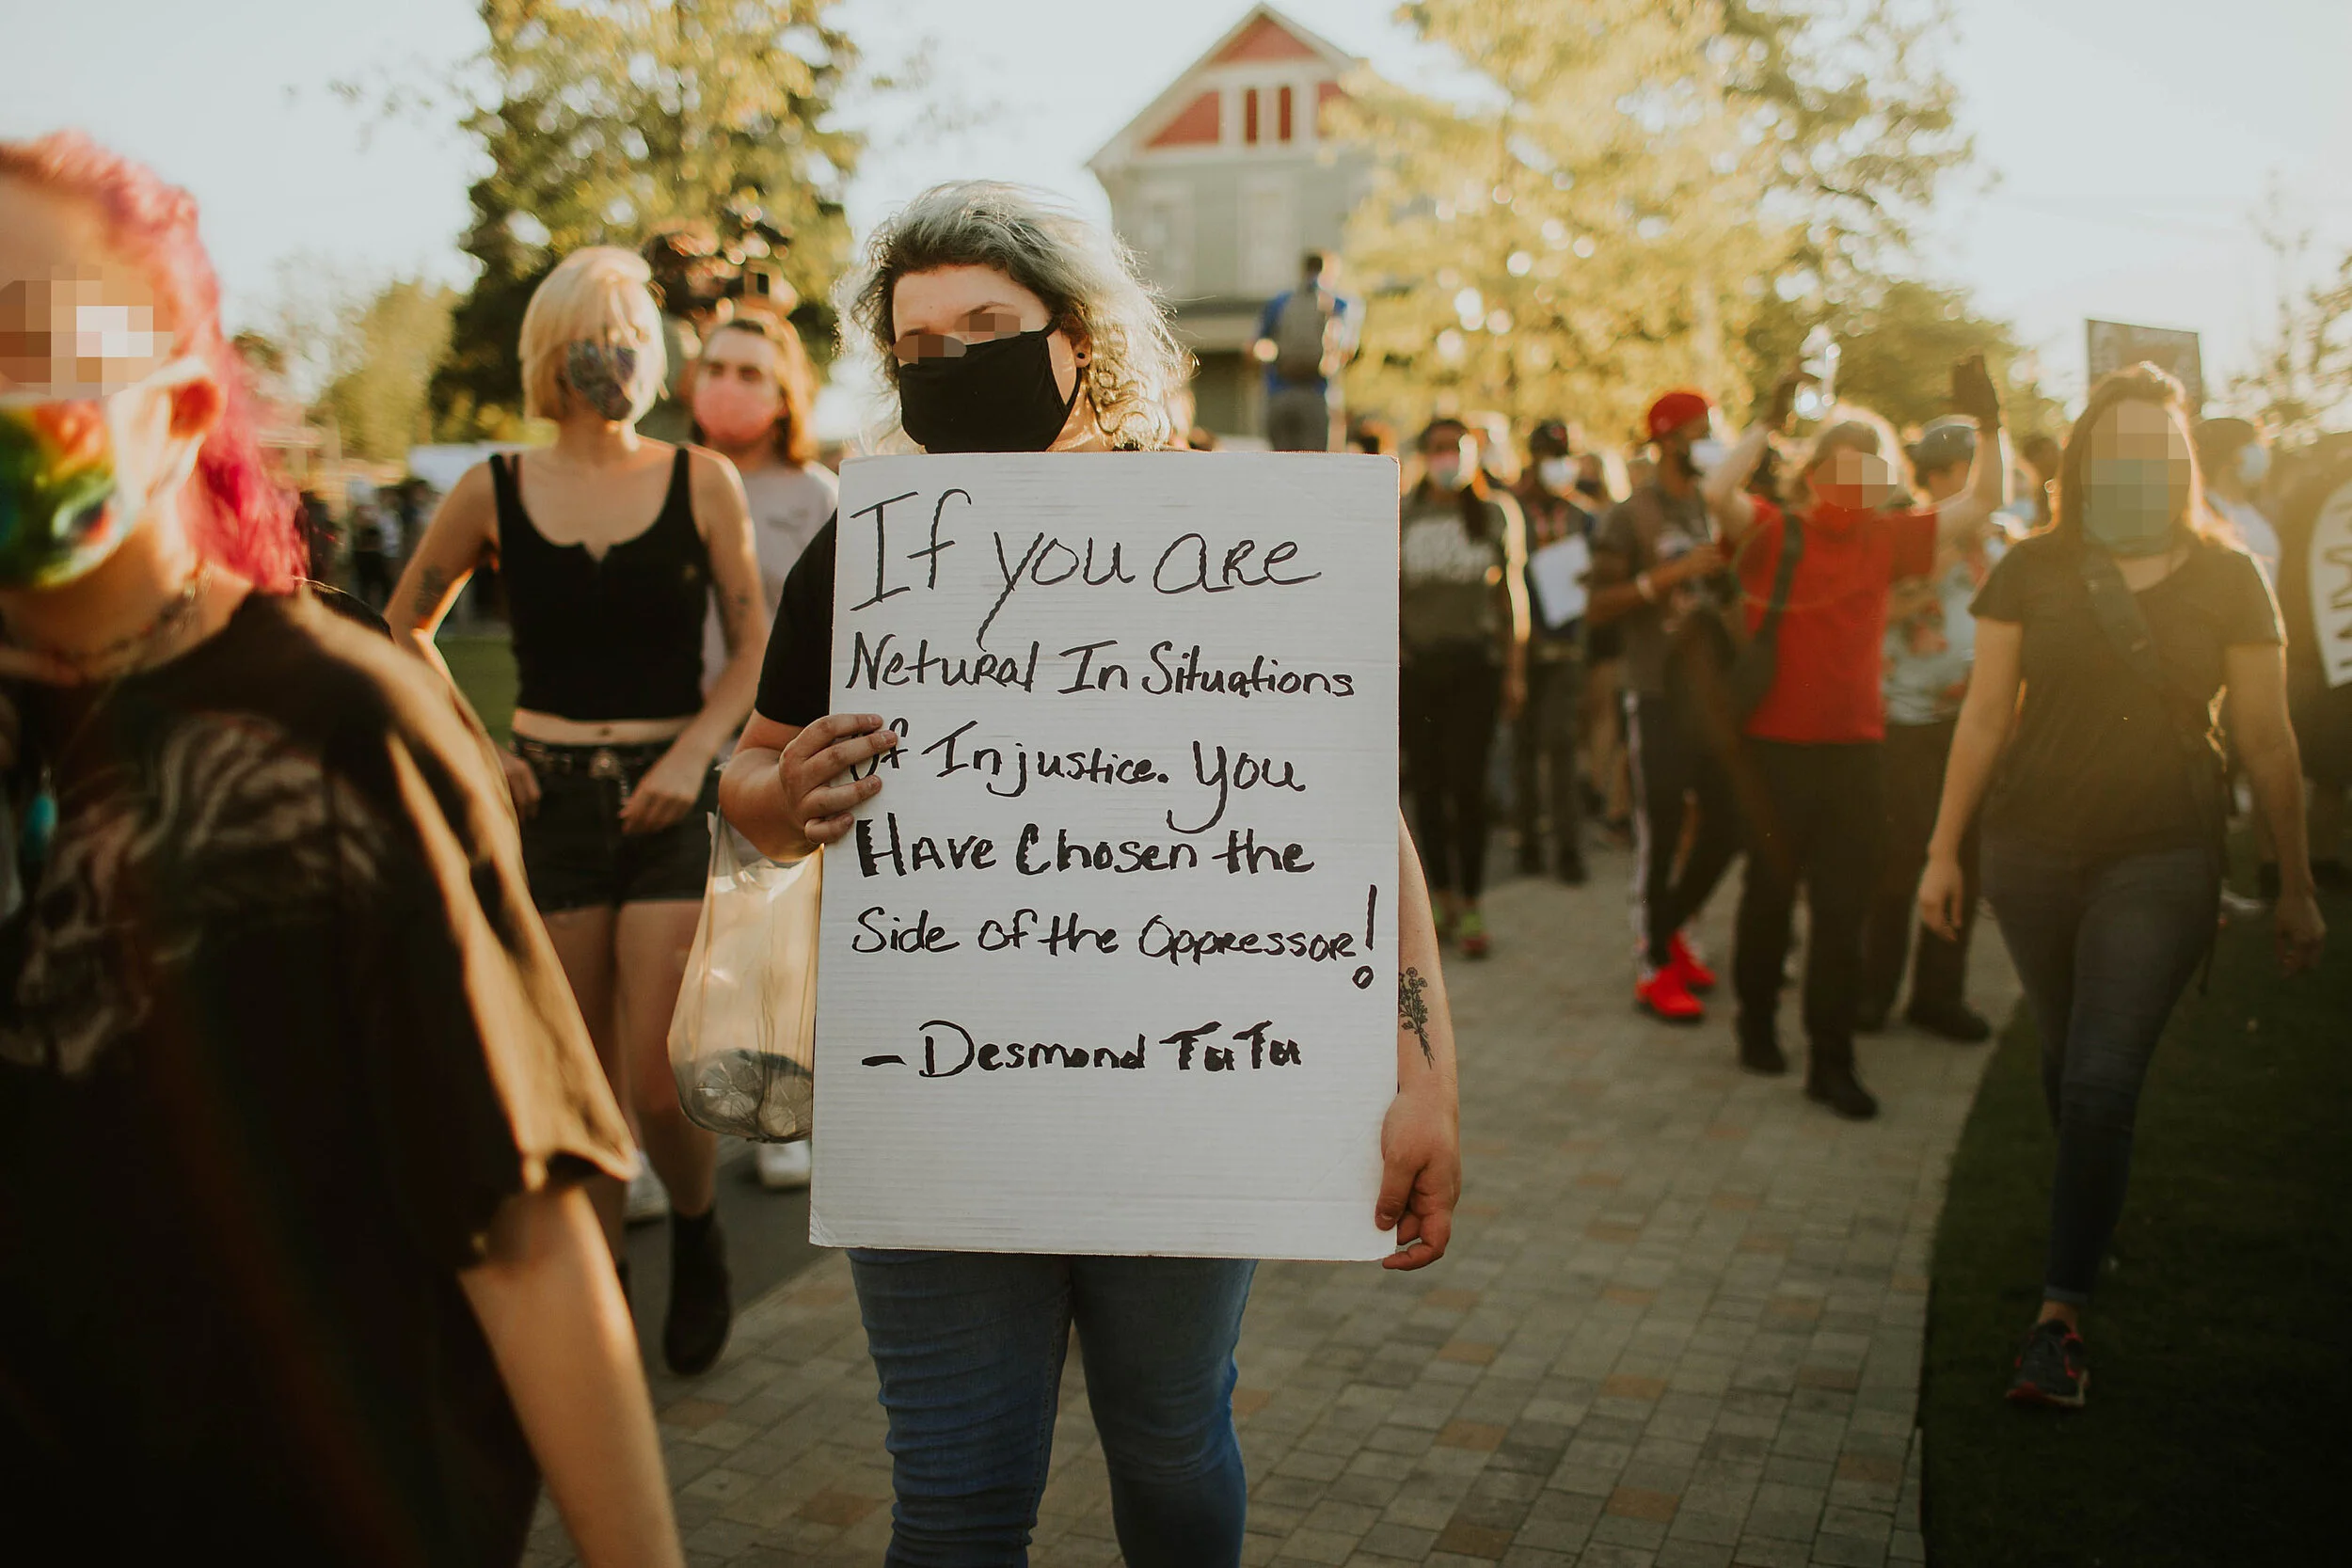 If you are
Netural In Situations
of Injustice. You
Have Chosen the
Side of the Oppressor!
- Desmond TuTu